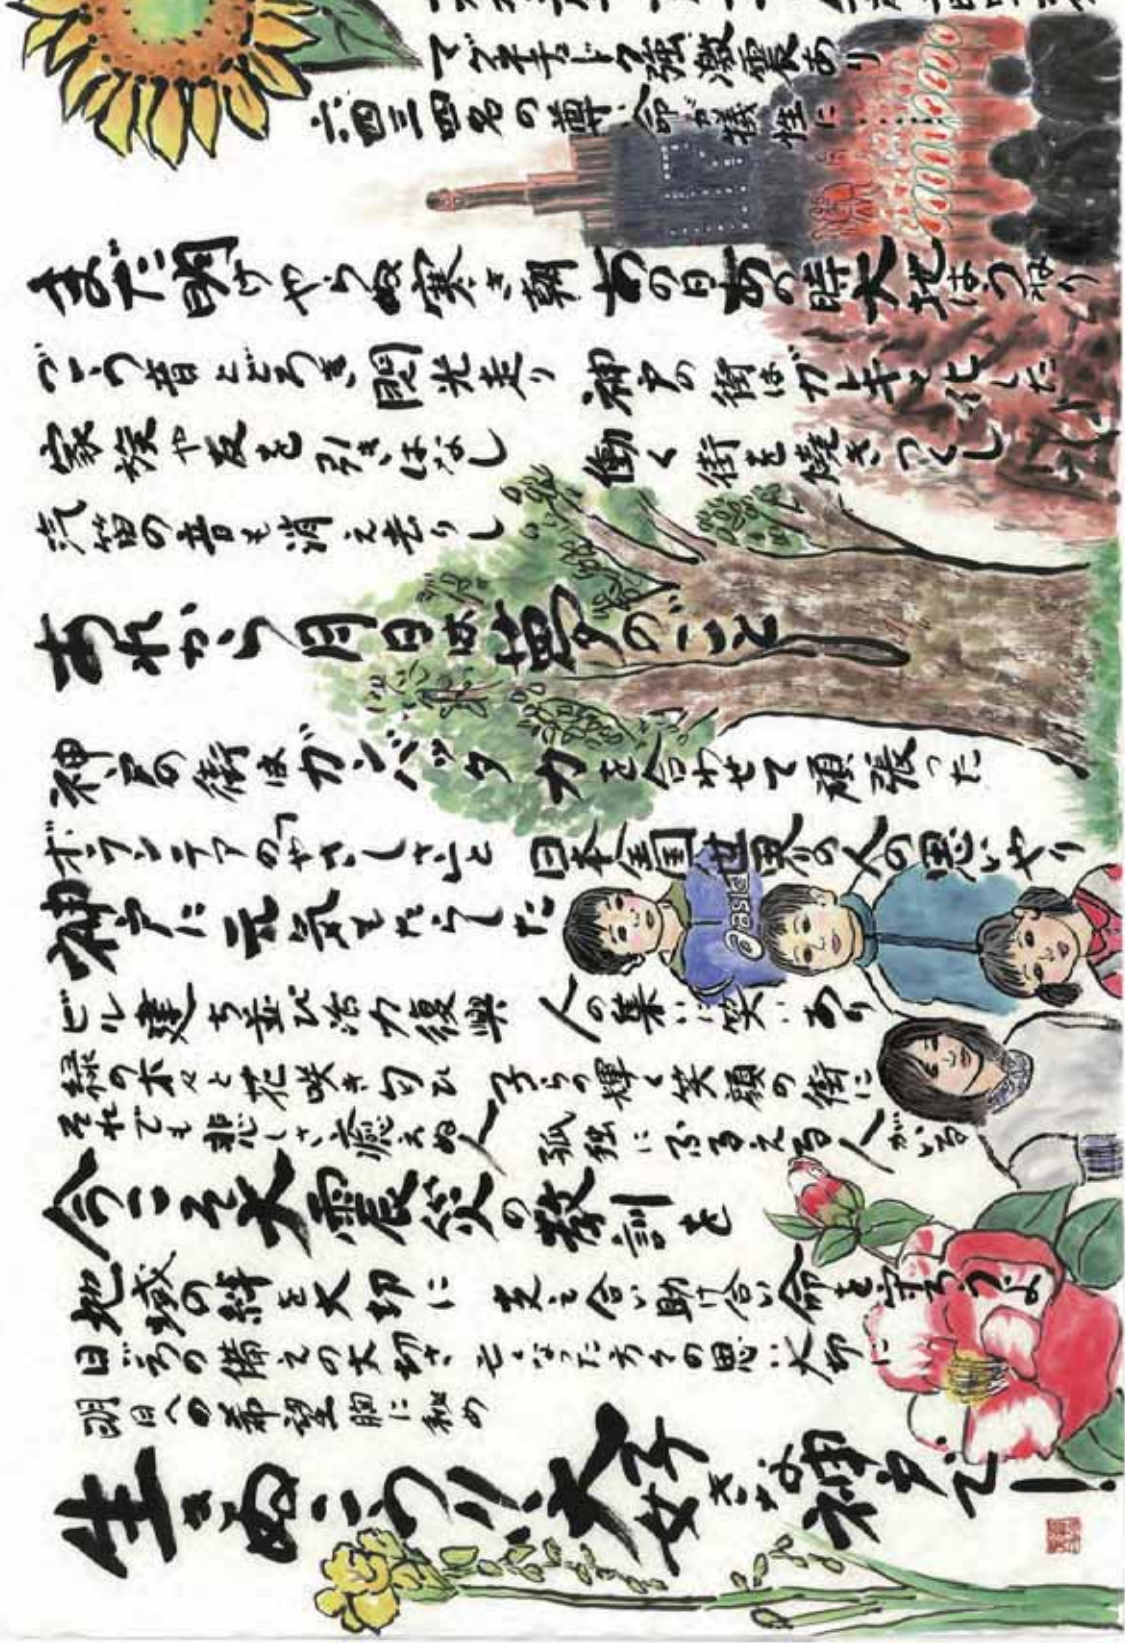 マグネチュード7強激震あり
六四三四名の尊い命が犠牲に……
まだ明けやらぬ寒き朝 あの日あの時大地はうねり
ゴーウ音とどろき閃光走り 神戸の街はガレキと化した
家族や友を引きはなし 働く街を焼きつくし
汽笛の音も消え去りし
あれから月日は夢のごとし
神戸の街はガンバッタ 力を合わせて頑張った
ボランテアのやさしさと 日本全国世界の人の思いやり
神戸に元気をもたらした
ビル建ち並び活力復興 人の集いに笑いあり
緑の木々と花咲き匂ひ 子らの輝く笑顔の街に
それでも悲しさ癒えぬ人 孤独にふるえる人がいる
今こそ大震災の教訓を
地域の絆を大切に 支え合い助け合い命を守ろうよ
日ごろの備えの大切さ 亡くなった方々の思い大切に
明日への希望胸に秘め
生きぬこうり、大好きな神戸で!
Oasis